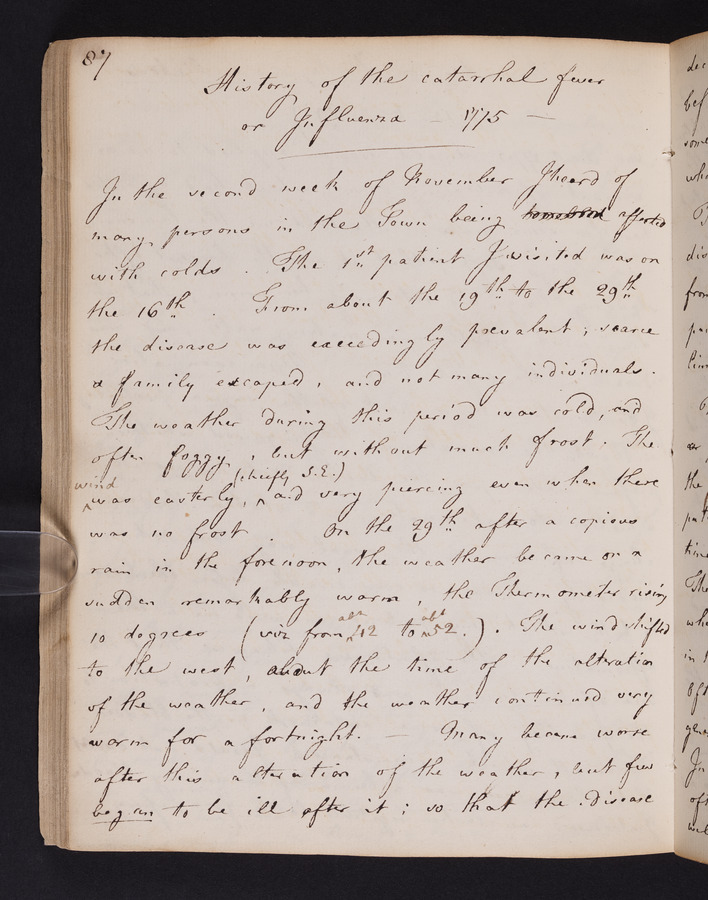 87
History of the catarrhal fever
or Influenza – 1775 –
In the second week of November I heard of
many persons in the Town being affected
with colds. The 1st patient I visited was on
the 16th. From about the 19th to the 29th
the disease was exceedingly prevalent; scarce
a family escaped, and not many individuals.
The weather during this period was cold, and
often foggy, but without much frost. The
(chiefly S.E.)
wind
was easterly, ^ and very piercing even when there
was no frost. On the 29th after a copious
rain in the forenoon, the weather became on a
sudden remarkably warm, the Thermometer rising
abt abt
10 degrees (viz from ^ 42 to ^ 52.). The wind shifted
to the west, about the time of the alteration
of the weather, and the weather continued very
warm for a fortnight. — Many became worse
after this alteration of the weather, but few
began to be ill after it; so that the Disease